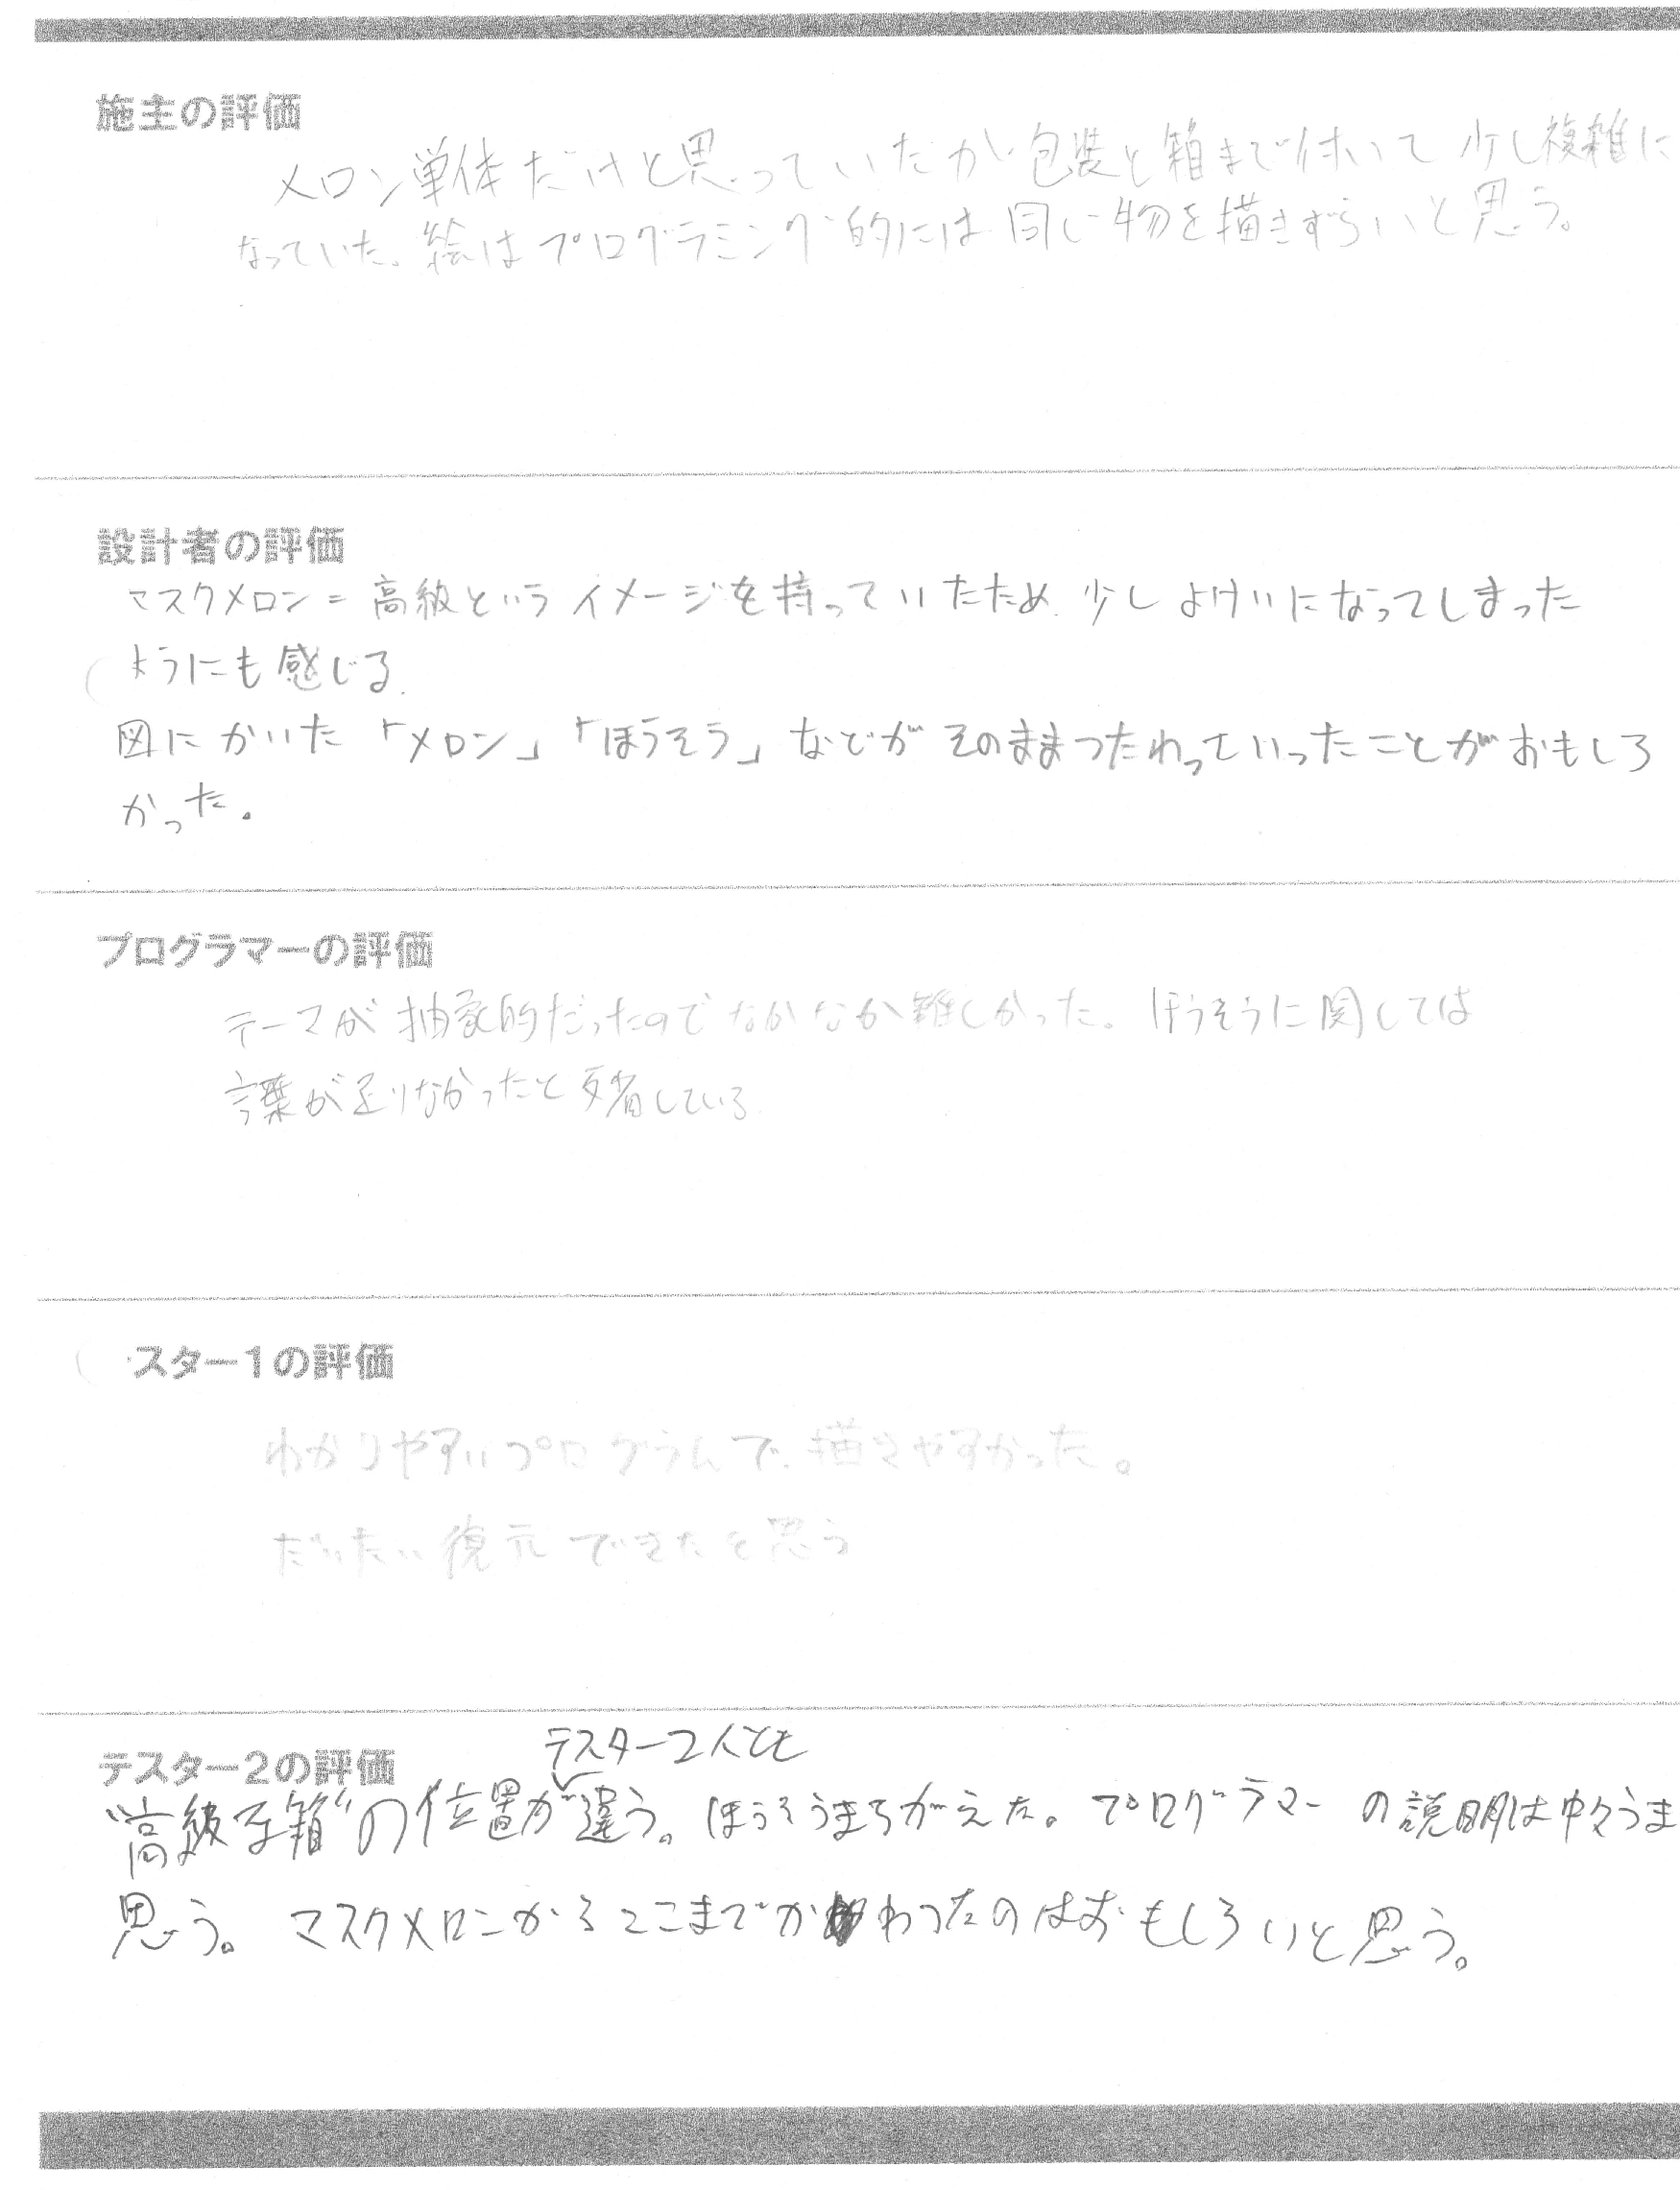 施主の評価
メロン単体だけと思っていたが包装と箱まで付いて少し複雑に
なっていた。絵はプログラミング的には同じ物を描きずらいと思う。
設計者の評価
マスクメロン=高級というイメージを持っていたため、少しよけいになってしまった
ようにも感じる.
図にかいた「メロン」「ほうそう」などがそのままつたわっていったことがおもしろ
かった。
プログラマーの評価
テーマが抽象的だったのでなかなか難しかった。ほうそうに関しては
言葉が足りなかったと反省している
スター1の評価
わかりやすいプログラムで描きやすかった。
だいたい復元できたと思う
テスター2人とも
テスター2の評価
“高級な箱”の位置が違う。ほうそうまちがえた。プログラマーの説明は中々うま
思う。マスクメロンからここまでかわったのはおもしろいと思う。